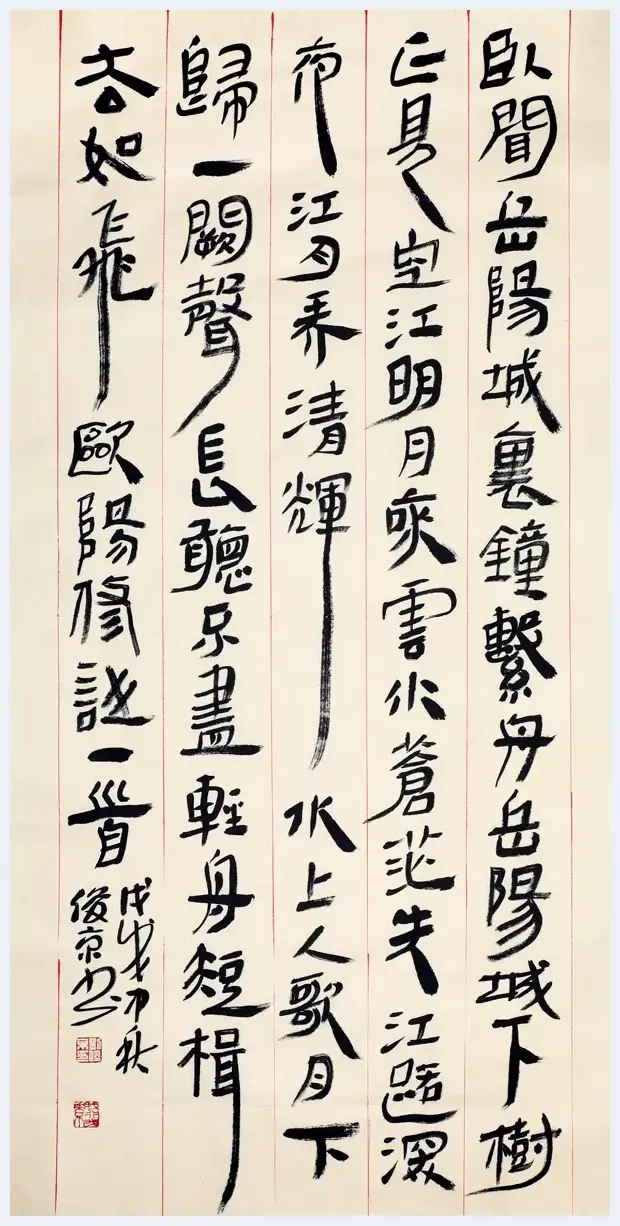 臥聞岳陽城裏鐘繫舟岳陽城下樹
正見空江明月來雲水蒼茫失江路深
夜江月弄清輝水上人歌月下
歸一闕聲長聽不盡輕舟短楫
去如飛歐陽修詩一首
戊戌中秋
俊京书